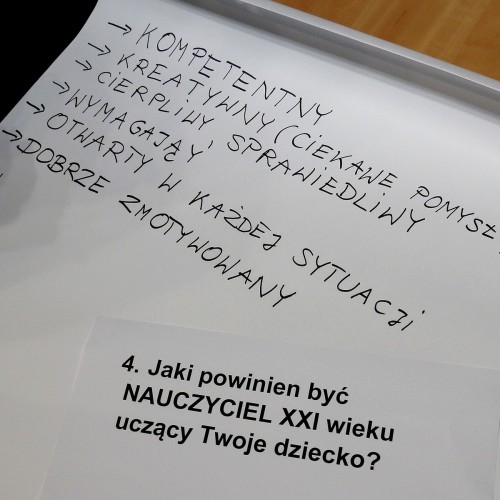 → KOMPETENTNY
→ KREATYWNY (CIEKAWE POMYSŁ
→ CIERPLIWY, SPRAWIEDLIWY
→ WYMAGAJĄCY
→ OTWARTY W KAŻDEJ SYTUACJI
→ DOBRZE ZMOTYWOWANY
4. Jaki powinien być
NAUCZYCIEL XXI wieku
uczący Twoje dziecko?